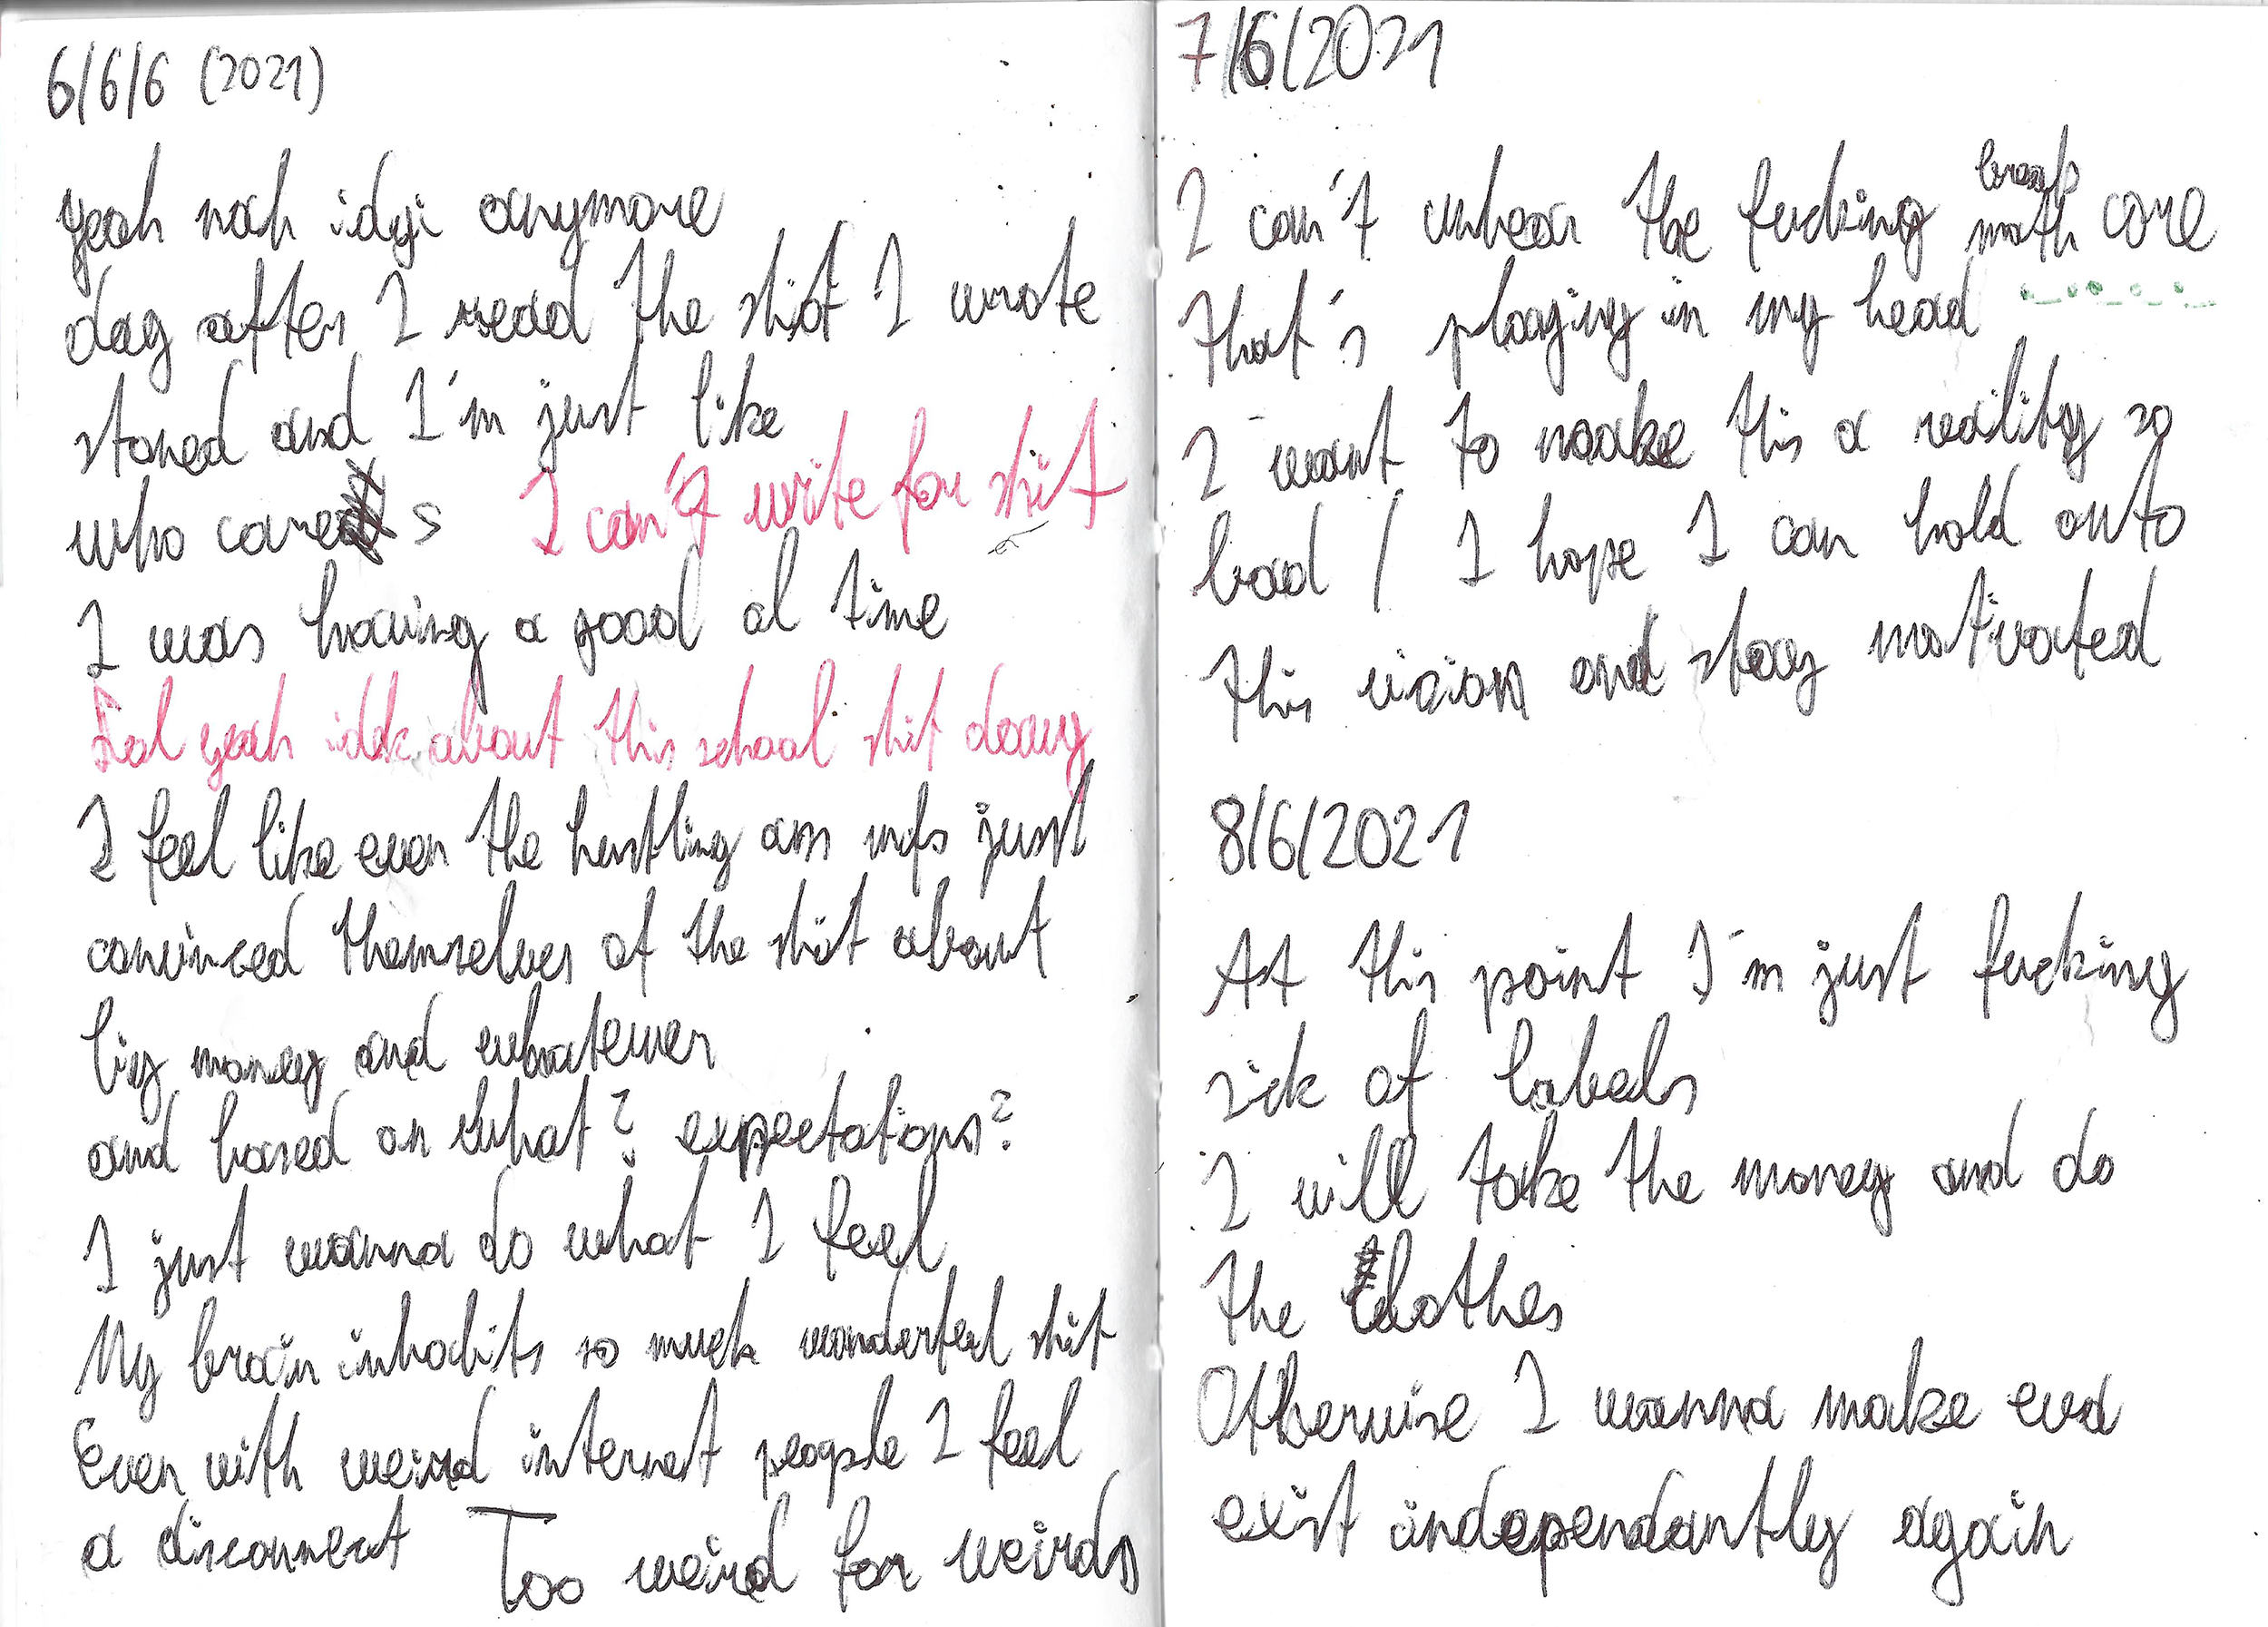 6/6/6 (2021)
yeah nah idgi anymore
day after I read the shit I wrote
stoned and I'm just like
who cares I can't write for shit
I was having a good ol time
Lol yeah idk about this school shit dawg
I feel like even the hustling ass mfs just
convinced themselves of the shit about
big money and whatever
and based on what? expectations?
I just wanna do what I feel
My brain inhabits so much wonderful shit
Even with weird internet people I feel
a disconnect Too weird for weirds
7/6/2021
I can't unhear the fucking break
math core
that's playing in my head
I want to make this a reality so
bad / I hope I can hold onto
this vision and stay motivated
8/6/2021
At this point I'm just fucking
sick of labels
I will take the money and do
the clothes
Otherwise I wanna make eva
exist independantly again